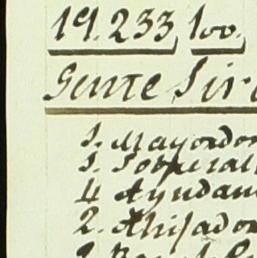 19.233,100.
Gente Sir
1. Mayordom
1. Sobre
4 Ayudan
2. Ahijador